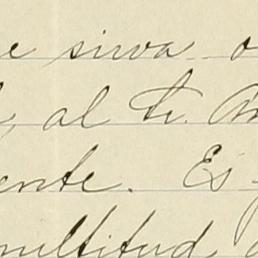 e sirva
, al Sr.
ente. Es
multitud